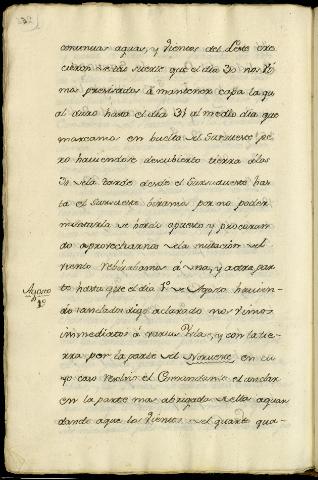 continuas aguas, y vientos del Leste cre-
cieron de tal suerte que el dia 30 nos vi-
mos presisados à mantener capa la qu
al duro hasta el dia 31 al medio dia que
marcamos en buelta del Sursueste pe-
ro haviendose descubierto tierra à las
3½ de la tarde desde el Sursudueste has-
ta el Sursueste viramos por no poder
montarla de bordo opuesto y procuran-
do aprovecharnos de la mutacion del
viento rebirabamos à una, y a otra par-
te hasta que el dia 1º de Agosto havien-
Agosto
1º
do digo aclarado nos vimos
immediatos à varias Yslas, y con la tie-
rra por la parte del Norueste en cu-
yo caso resolvio el Comandante el anclar
en la parte mas abrigada de ellas aguar
dando aque los vientos del quarto qua-